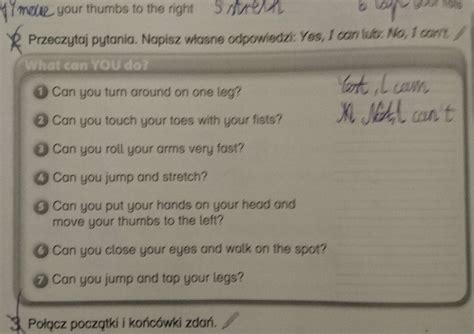 move your thumbs to the right
Przeczytaj pytania. Napisz własne odpowiedzi: Yes, I can lub: No, I can't.
What can YOU do?
1 Can you turn around on one leg?
I cam
2 Can you touch your toes with your fists?
I can't
3 Can you roll your arms very fast?
4 Can you jump and stretch?
5 Can you put your hands on your head and
move your thumbs to the left?
6 Can you close your eyes and walk on the spot?
7 Can you jump and tap your legs?
3 Połącz początki i końcówki zdań.